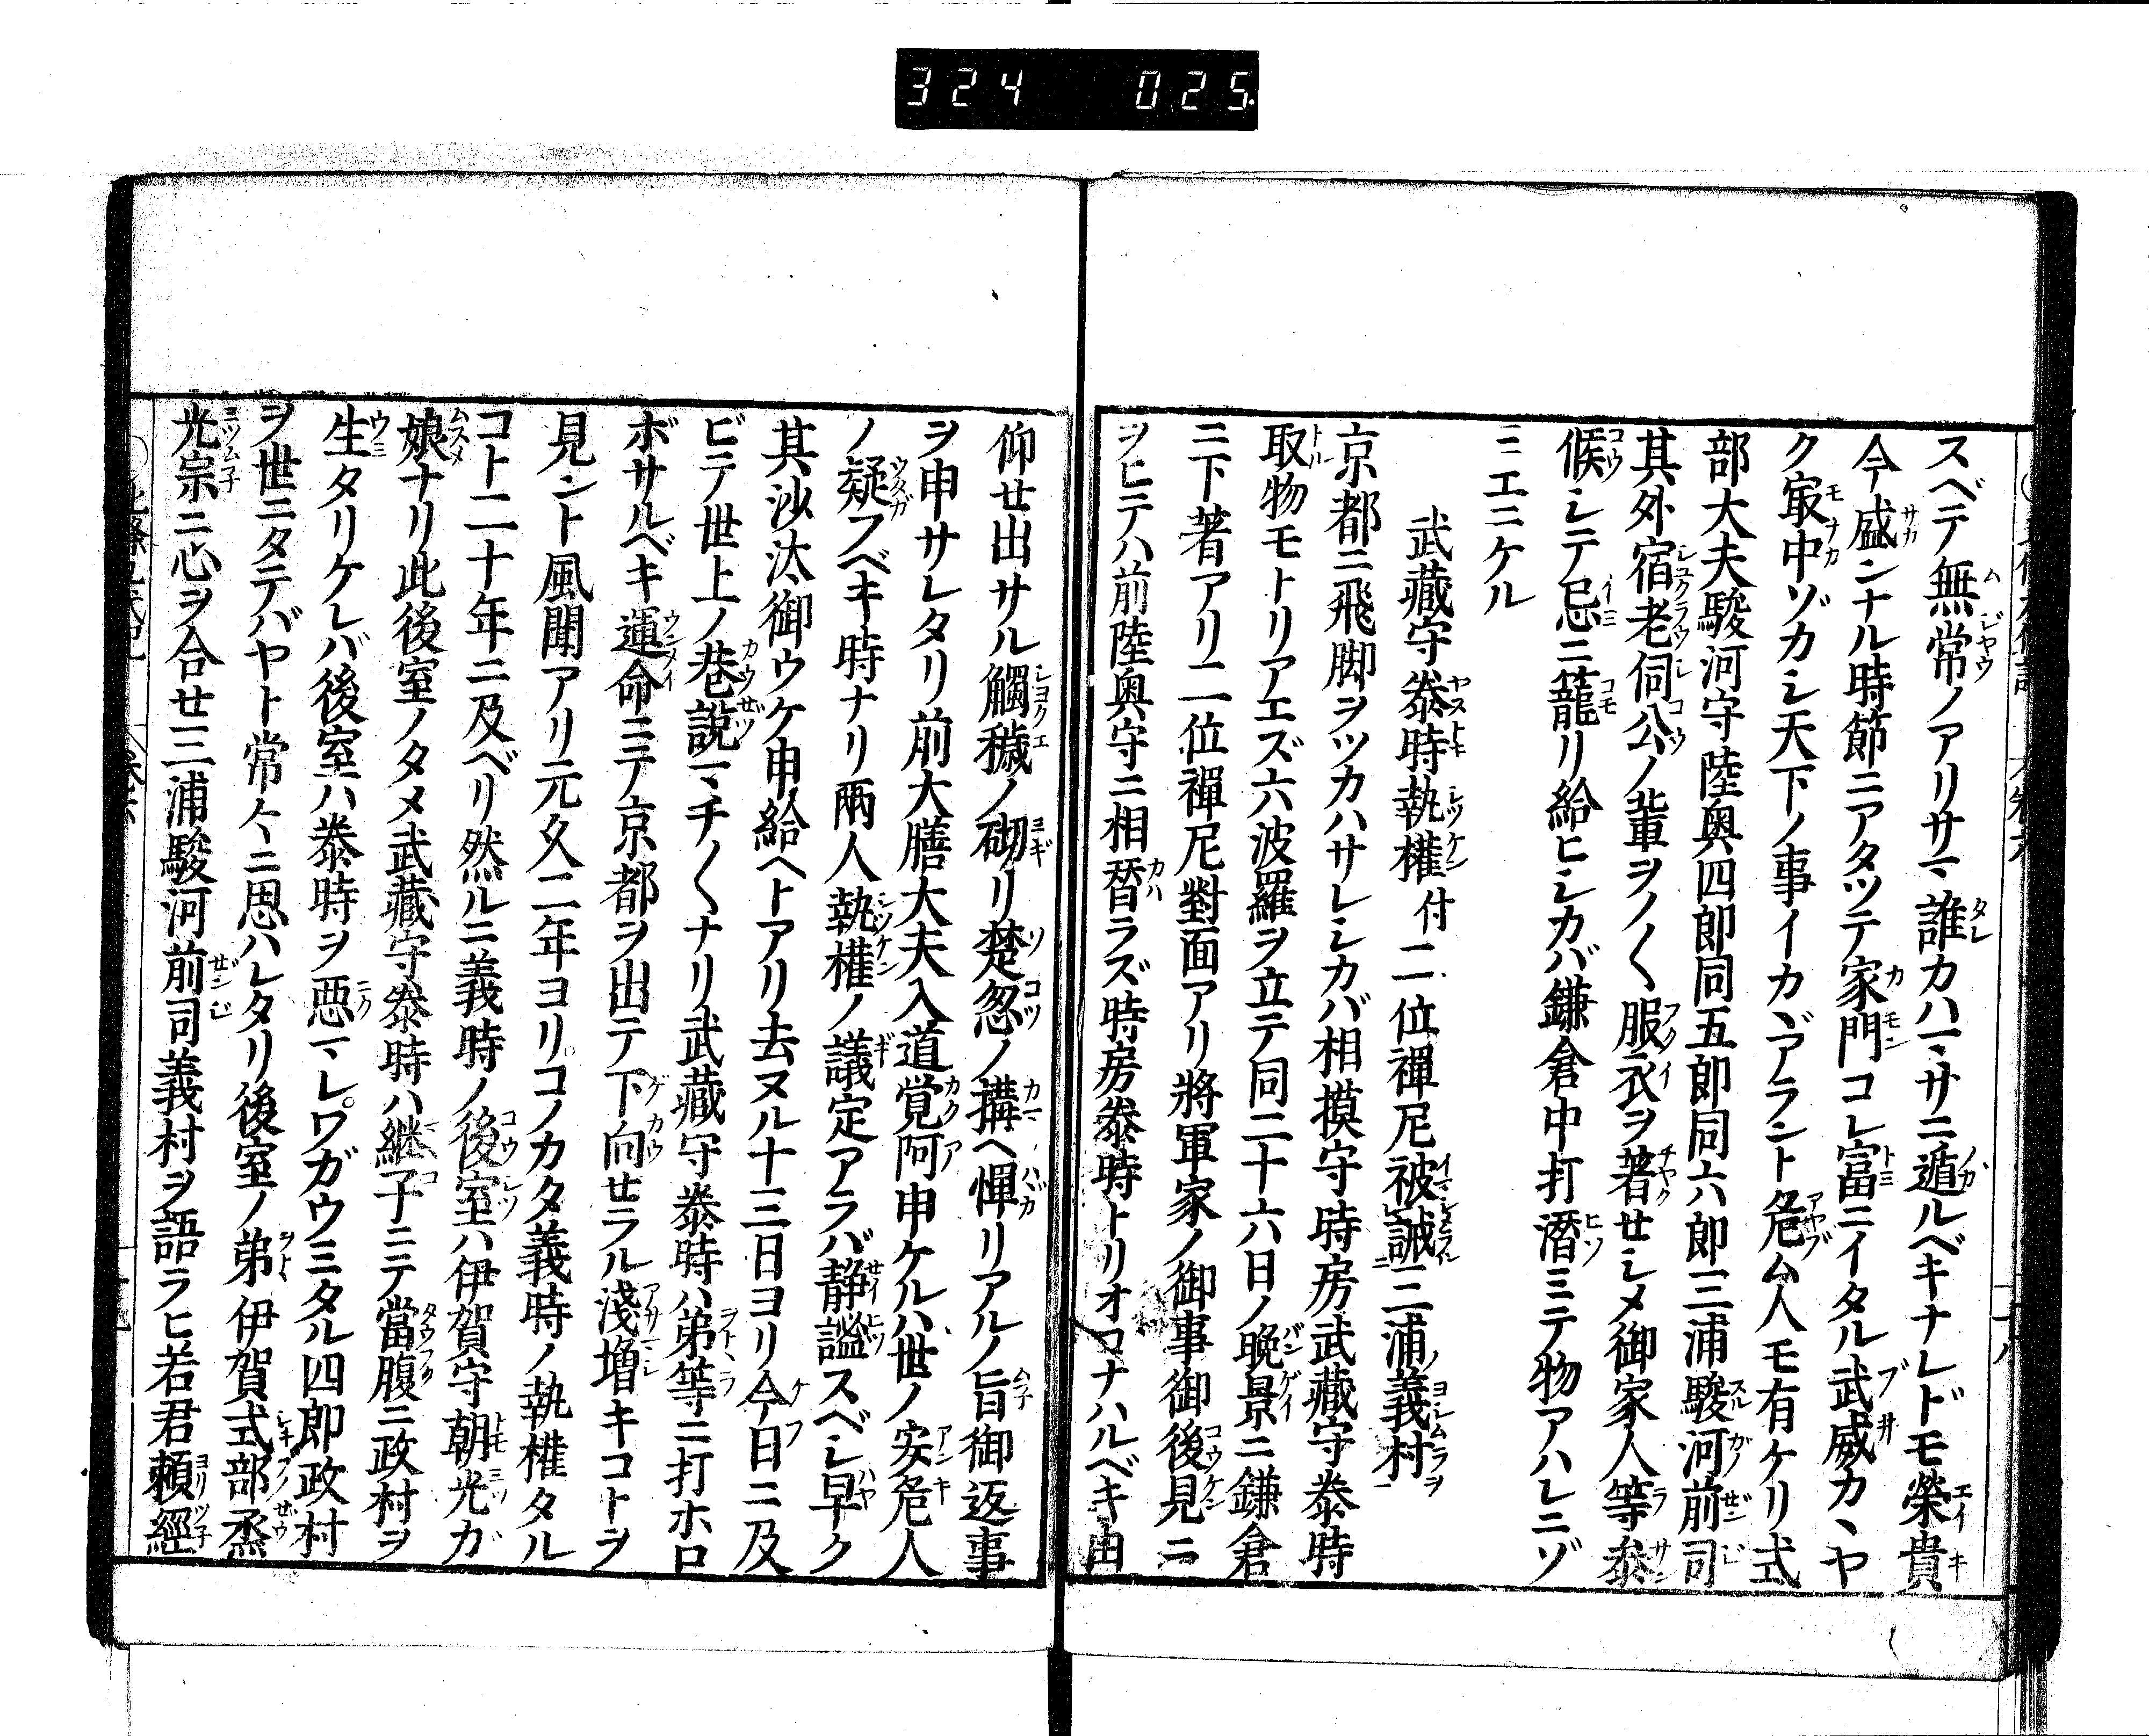 324 025
スベテ無常ノアリサマ誰カハマサニ遁ルベキナレドモ榮貴
今盛ンナル時節ニアタツテ家門コレ富ニイタル武威カヽヤ
ク㝡中ゾカシ天下ノ事イカヾアラント危ム人モ有ケリ式
部大夫駿河守陸奥四郎同五郎同六郎三浦駿河前司
其外宿老伺公ノ輩ヲノ〱服衣ヲ著せシメ御家人等参
候シテ忌ニ籠リ給ヒシカバ鎌倉中打潛ミテ物アハレニゾ
ミエニケル
武藏守泰時執權付二位禪尼被誡三浦義村
京都ニ飛脚ヲツカハサレシカバ相摸守時房武藏守泰時
取物モトリアエズ六波羅ヲ立テ同二十六日ノ晩景ニ鎌倉
ニ下著アリ二位禪尼對面アリ將軍家ノ御事御後見ニ
ヲヒテハ前陸奥守ニ相替ラズ時房泰時トリオコナハルベキ由
仰せ出サル觸穢ノ砌リ楚忽ノ搆ヘ憚リアルノ旨御返事
ヲ申サレタリ前大膳大夫入道覚阿申ケルハ世ノ安危人
ノ疑フベキ時ナリ兩人執權ノ議定アラバ静謐スベシ早ク
其沙汰御ウケ申給ヘトアリ去ヌル十三日ヨリ今日ニ及
ビテ世上ノ巷説マチ〱ナリ武藏守泰時ハ弟等ニ打ホロ
ボサルベキ運命ニテ京都ヲ出テ下向せラル淺増キコトヲ
見ント風聞アリ元久二年ヨリコノカタ義時ノ執權タル
コト二十年ニ及ベリ然ルニ義時ノ後室ハ伊賀守朝光ガ
娘ナリ此後室ノタメ武藏守泰時ハ継子ニテ當腹ニ政村ヲ
生タリケレバ後室ハ泰時ヲ悪マレワガウミタル四郎政村
ヲ世ニタテバヤト常々ニ思ハレタリ後室ノ弟伊賀式部烝
光宗ニ心ヲ合せ三浦駿河前司義村ヲ語ラヒ若君頼經